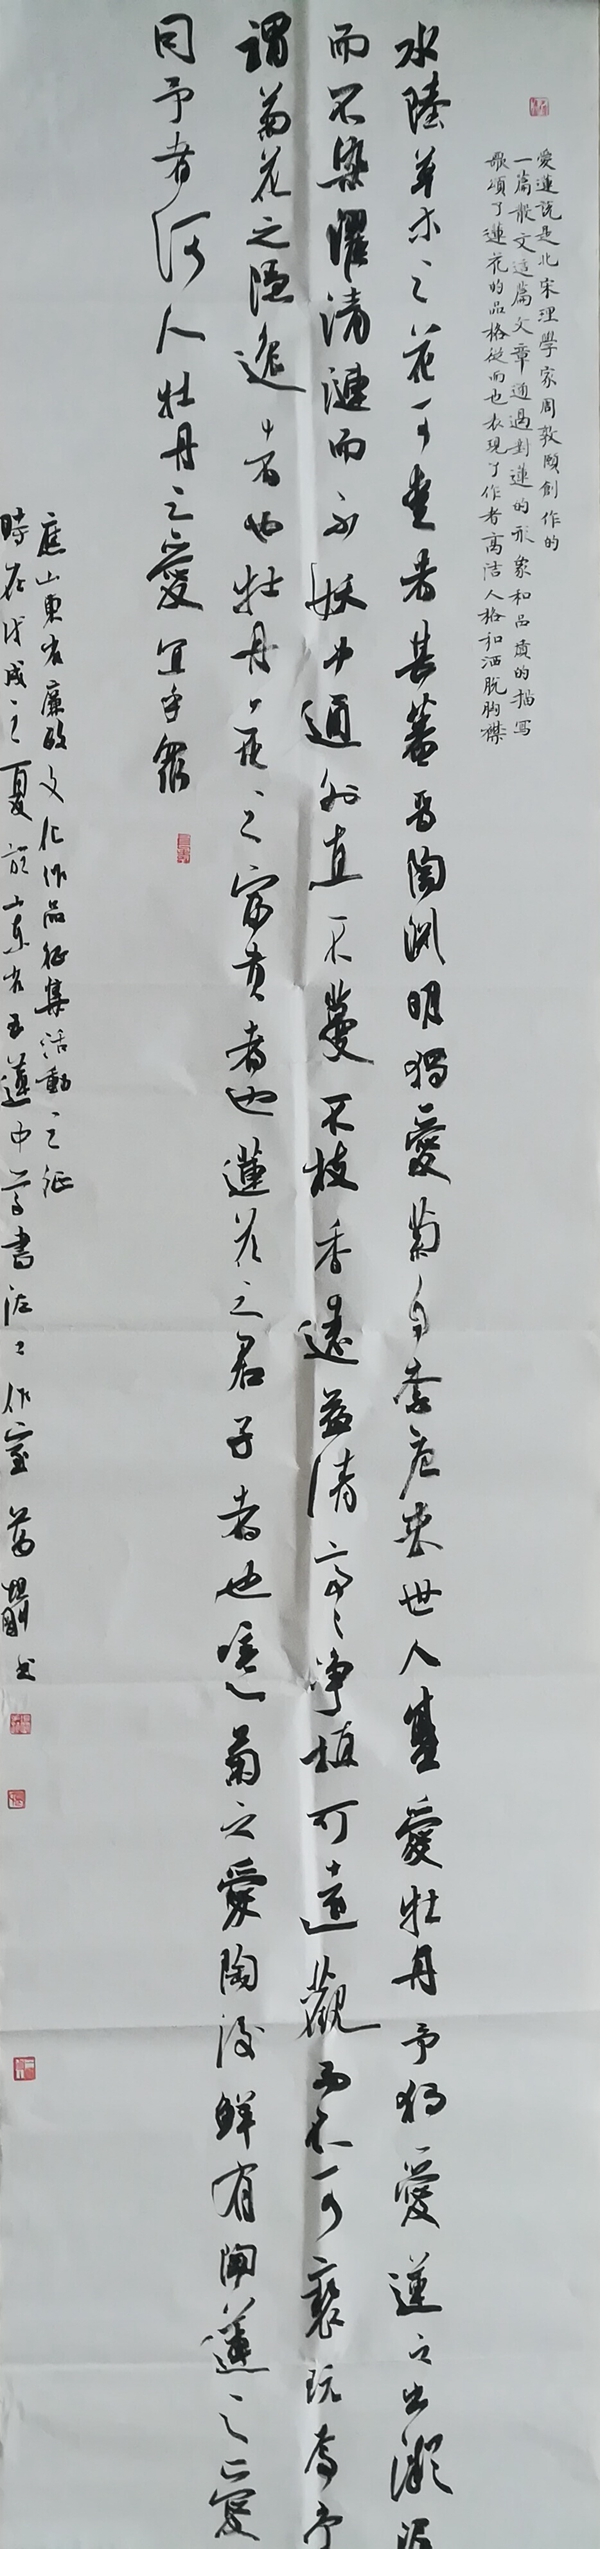 愛蓮説是北宋理學家周敦頤創作的
一篇散文這篇文章通過對蓮的形象和品質的描寫
歌頌了蓮花的品格從而也表現了作者高洁人格和洒脱胸襟
水陸草木之花可愛者甚蕃晋陶渊明獨愛菊自李唐来世人甚愛牡丹予獨愛蓮之出淤泥
而不染濯清漣而不妖中通外直不蔓不枝香遠益清亭亭净植可遠觀而不可褻玩焉予
謂菊花之隱逸者也牡丹花之富貴者也蓮花之君子者也噫菊之愛陶後鮮有聞蓮之愛
同予者何人牡丹之愛宜乎衆
應山東省廉政文化作品征集活動之征
時在戊戌之夏於山東省五蓮中等書法工作室